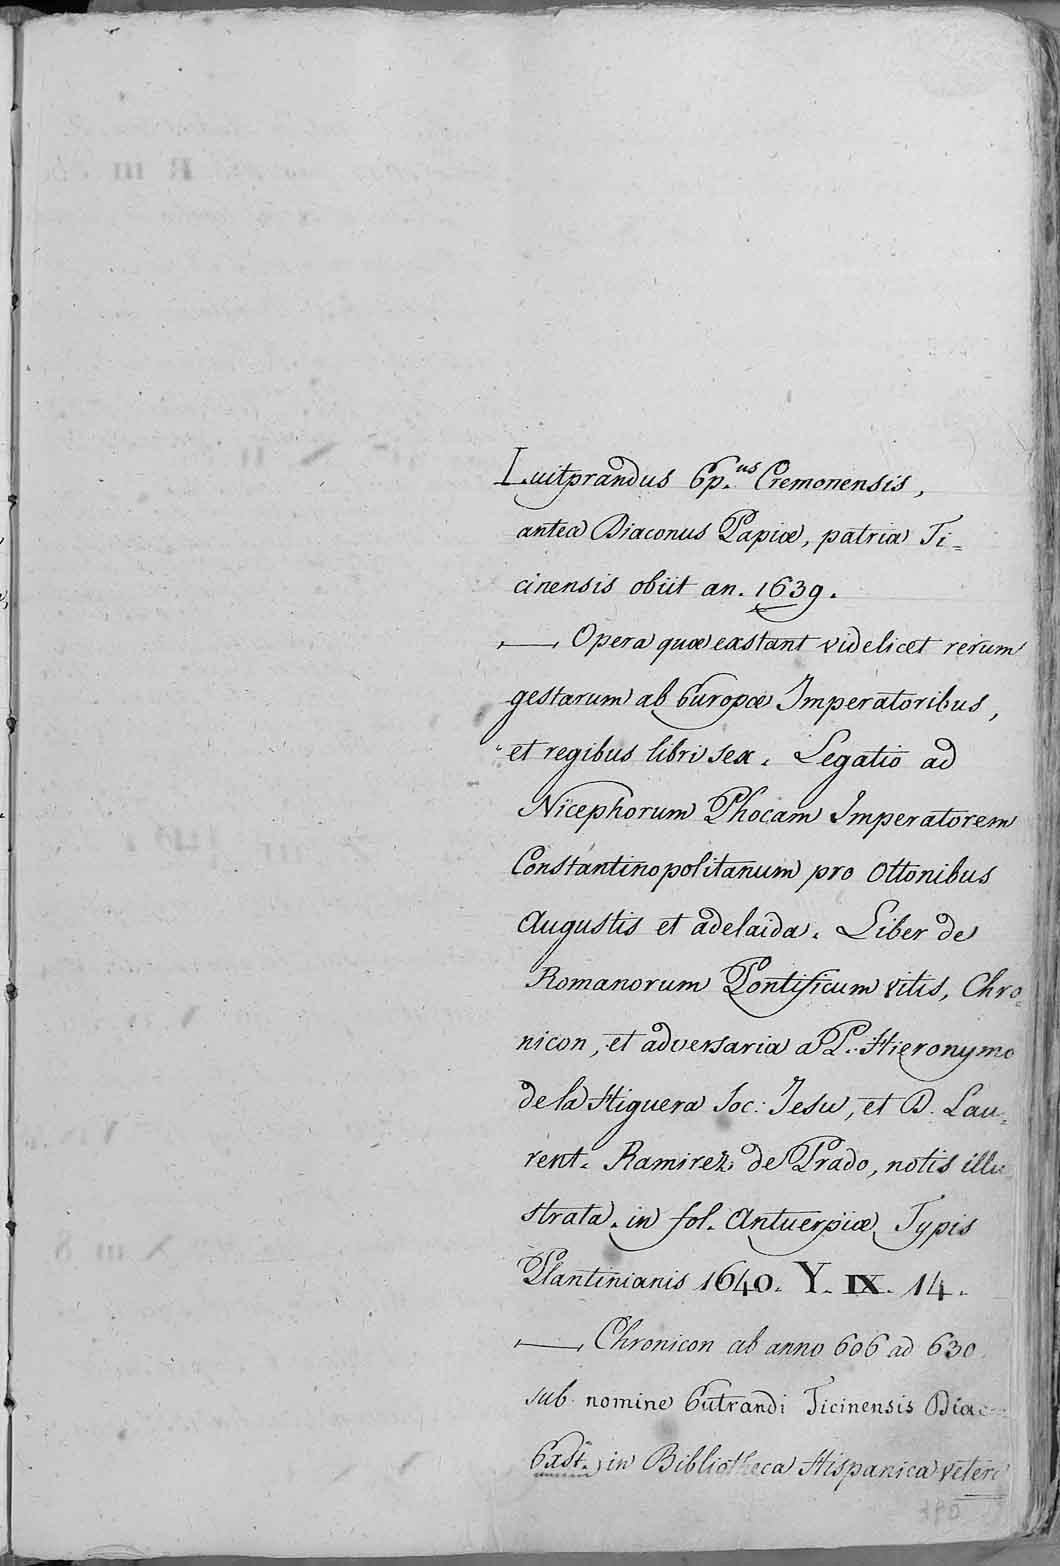 Luitprandus Ep.us Cremonensis,
antea Diaconus Papiæ, patria Ti=
cinensis obiit an. 1639.
— Opera quæ exstant videlicet rerum
gestarum ab Europæ Imperatoribus,
et regibus libri sex. Legatio ad
Nicephorum Phocam Imperatorem
Constantinopolitanum pro Ottonibus
Augustis et adelaida. Liber de
Romanorum Pontificum vitis, Chro=
nicon, et adversaria a P. Hieronymo
de la Higuera Soc: Jesu, et D. Lau=
rent. Ramirez de Prado, notis illu
strata. in fol. Antuerpiæ Typis
Plantinianis 1640. Y. IX. 14.
— Chronicon ab anno 606 ad 630
sub nomine Eutrandi Ticinensis Diac
Exst. in Bibliotheca Hispanica veteri